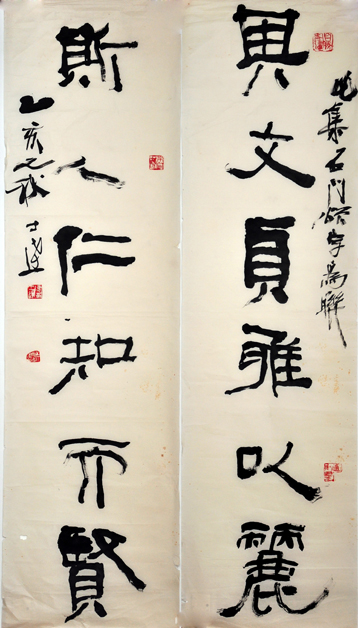 其文貞雅以麗
斯人仁知而賢
集石門頌字為聯
乙亥之秋